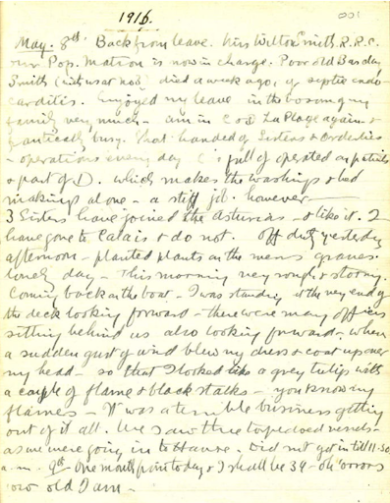 1916.
May. 8th Back from leave. Miss Wilton Smith. R.R.C.
our Pop. Matron is now in charge. Poor old Barclay
Smith died a week ago, of septic endo-
carditis. Enjoyed my leave in the bosom of my
family very much - am in C & D La Plage again &
frantically busy. Short handed of Sisters & Orderlies
- operations every day C is full of operated on patients
& part of D. which makes the washings & bed
makings alone - a stiff job. however -
3 Sisters have joined the Asturias - & like it. 2
have gone to Calais & do not. Off duty yesterday
afternoon - planted plants on the mens graves.
lovely day - This morning very rough & stormy.
Coming back on the boat - I was standing at the very end of
the deck looking forward - there were many officers
sitting behind us also looking forward - when
a sudden gust of wind blew my dress & coat up over
my head - so that I looked like a grey tulip with
a couple of flame & black stalks - you know my
flames - It was a terrible business getting
out of it all. We saw three torpedoed vessels -
as we were going in to Havre. Did not get in till 11-30
a.m. 9th One month from today I shall be 39 - oh 'orrors
'ow old I am -